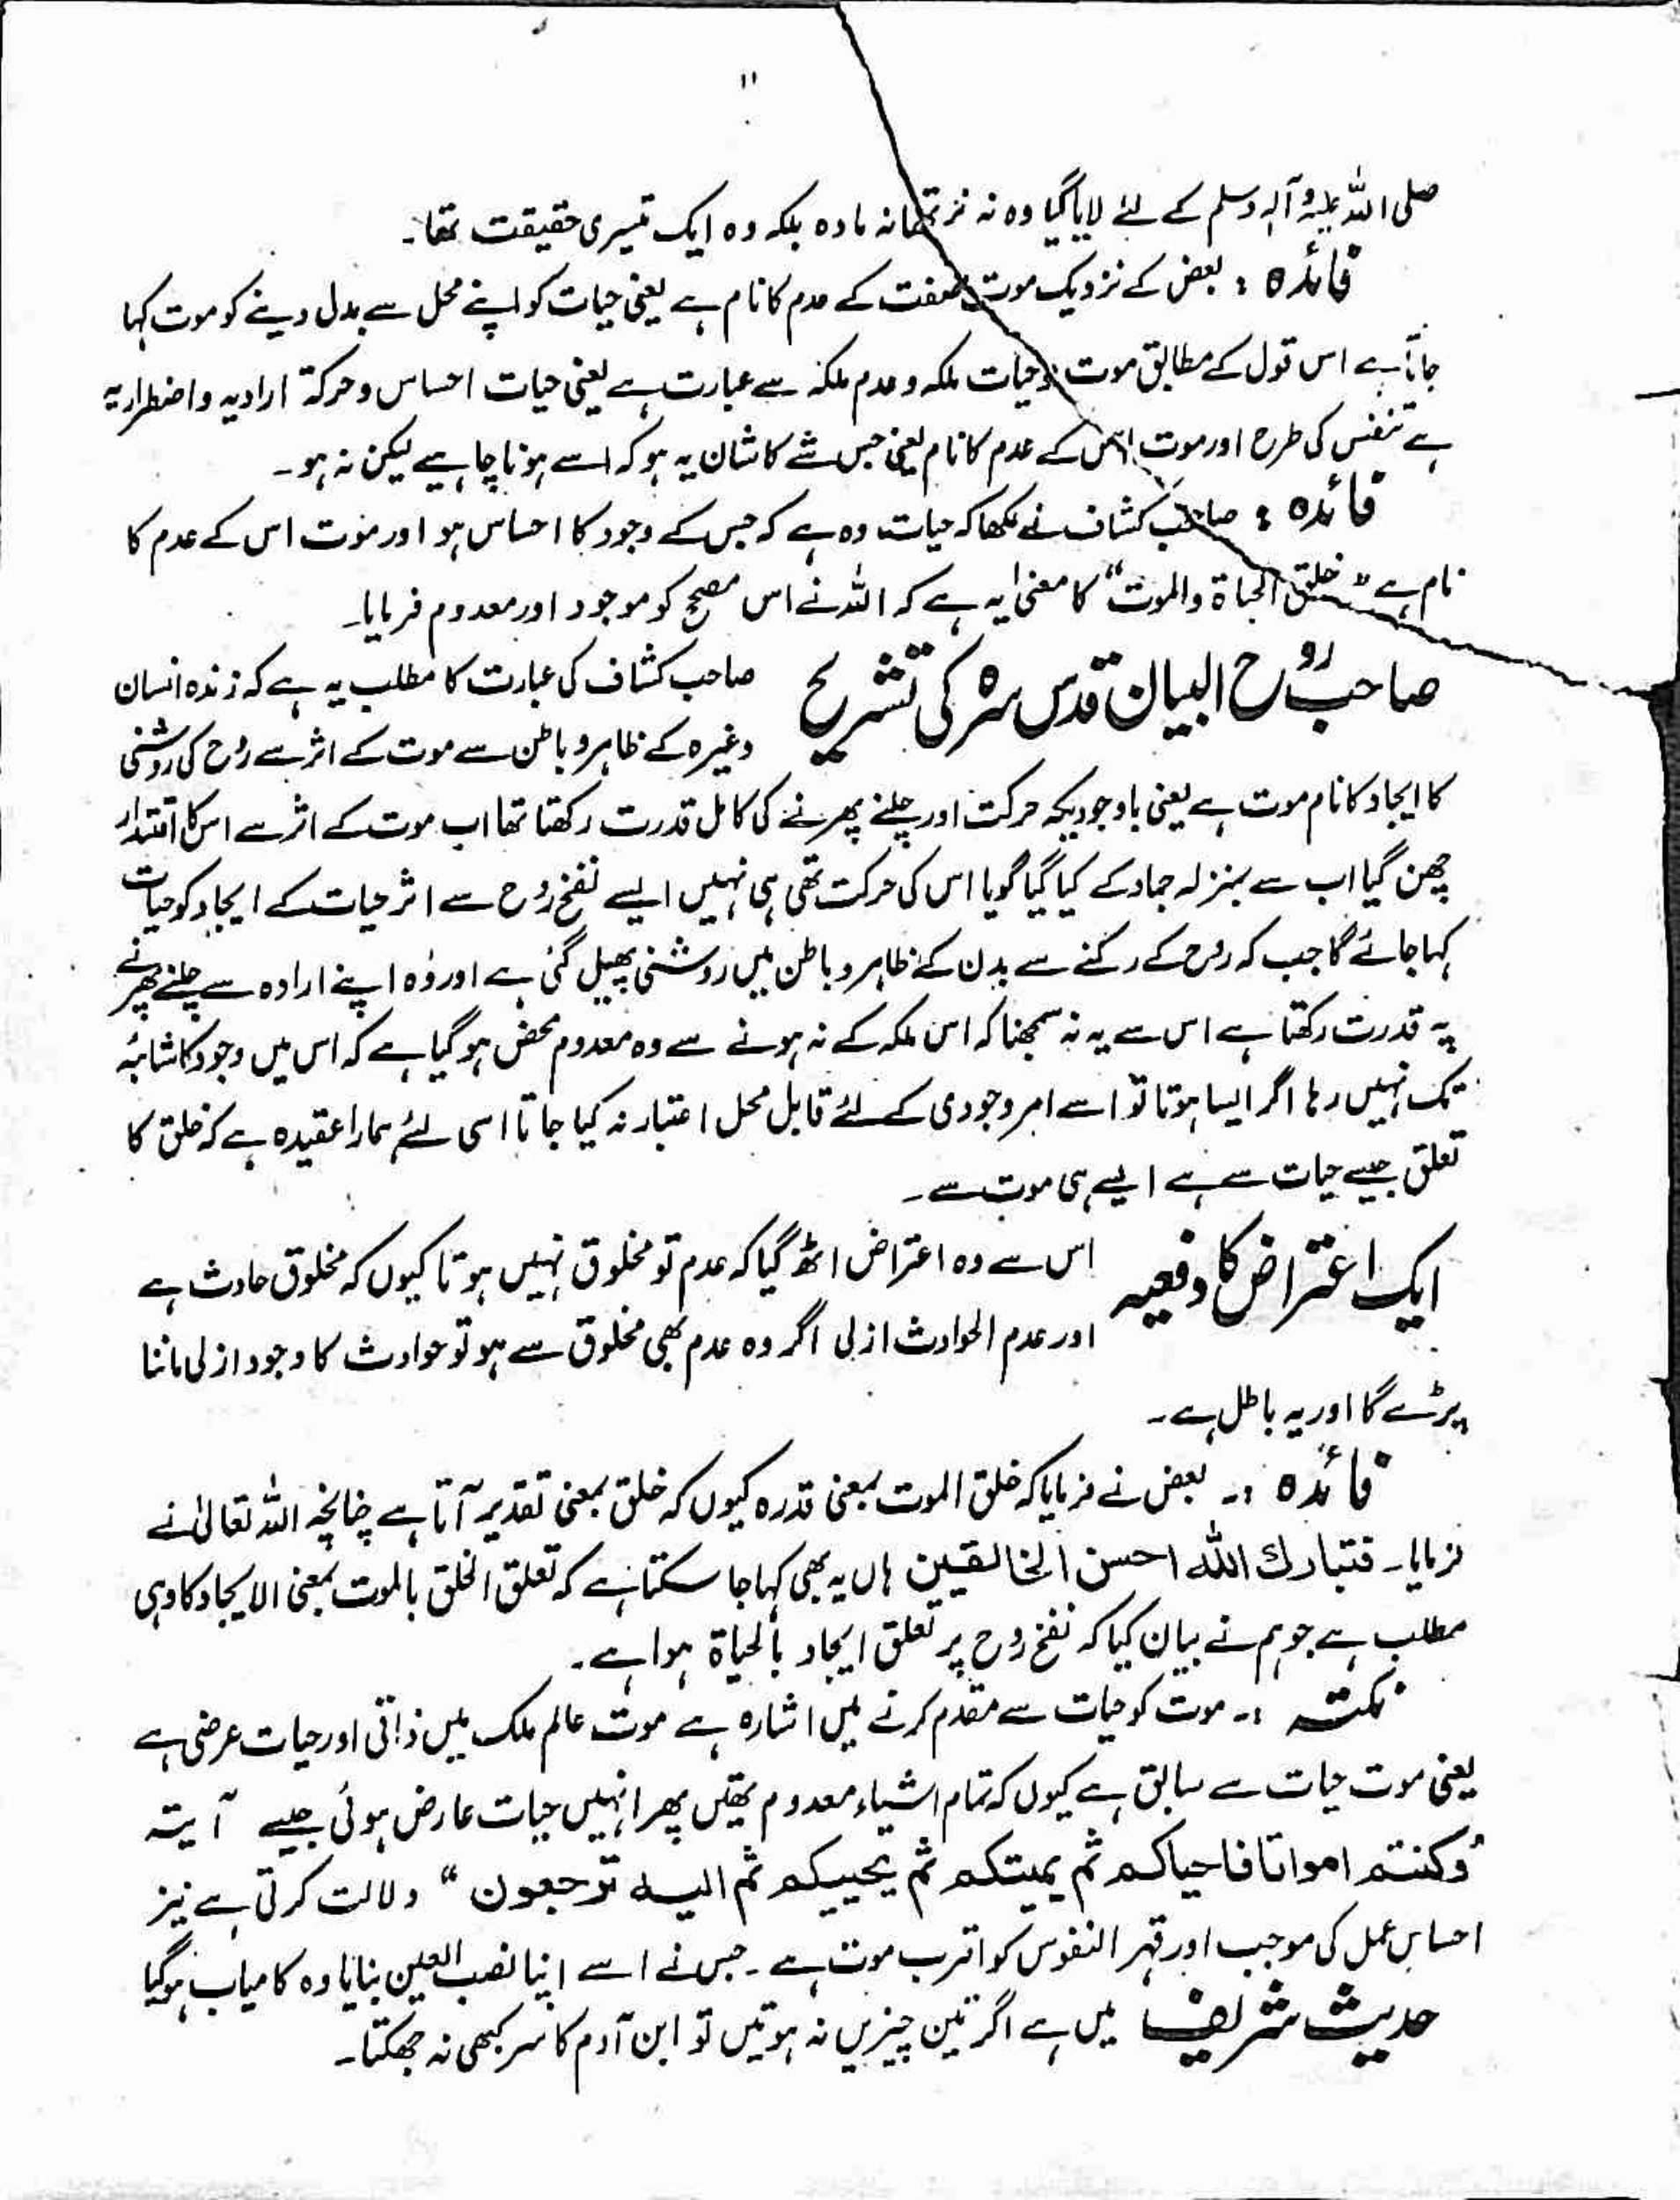 ۱۱
صلی اللہ علیہ وآلہ وسلم کے لئے لایا گیا وہ نہ نر تھا نہ مادہ بلکہ وہ ایک تیسری حقیقت تھا۔
فائدہ : بعض کے نزدیک موت صفت کے عدم کا نام ہے یعنی حیات کو اپنے محل سے بدل دینے کو موت کہا
جاتا ہے اس قول کے مطابق موت و حیات ملکہ و عدم ملکہ سے عبارت ہے یعنی حیات احساس و حرکۃ ارادیہ و اضطراریہ
ہے تنفس کی طرح اور موت اس کے عدم کا نام یعنی جس شے کا شان یہ ہو کہ اسے ہونا چاہیے لیکن نہ ہو۔
فائدہ : صاحب کشاف نے لکھا کہ حیات وہ ہے کہ جس کے وجود کا احساس ہو اور موت اس کے عدم کا
نام ہے "خلق الحیاۃ والموت" کا معنیٰ یہ ہے کہ اللہ نے اس مصحح کو موجود اور معدوم فرمایا۔
صاحب رُوح البیان قدس سرہ کی تشریح صاحب کشاف کی عبارت کا مطلب یہ ہے کہ زندہ انسان
وغیرہ کے ظاہر و باطن سے موت کے اثر سے رُوح کی روشنی
کا ایجاد کا نام موت ہے یعنی باوجودیکہ حرکت اور چلنے پھرنے کی کامل قدرت رکھتا تھا اب موت کے اثر سے اس کا اقتدار
چھن گیا اب سے بمنزلہ جماد کے کیا گیا گویا اس کی حرکت تھی ہی نہیں ایسے نفخ رُوح سے اثر حیات کے ایجاد کو حیات
کہا جائے گا جب کہ روح کے رکنے سے بدن کے ظاہر و باطن میں روشنی پھیل گئی ہے اور وُہ اپنے ارادہ سے چلنے پھرنے
پہ قدرت رکھتا ہے اس سے یہ نہ سمجھنا کہ اس ملکہ کے نہ ہونے سے وہ معدوم محض ہو گیا ہے کہ اس میں وجود کا شائبہ
تک نہیں رہا اگر ایسا ہوتا تو اسے امر وجودی کے لئے قابل محل اعتبار نہ کیا جاتا اسی لئے ہمارا عقیدہ ہے کہ خلق کا
تعلق جیسے حیات سے ہے ایسے ہی موت سے۔
ایک اعتراض کا دفعیہ اس سے وہ اعتراض اٹھ گیا کہ عدم تو مخلوق نہیں ہوتا کیوں کہ مخلوق حادث ہے
اور عدم الحوادث ازلی اگر وہ عدم بھی مخلوق سے ہو تو حوادث کا وجود ازلی ماننا
پڑے گا اور یہ باطل ہے۔
فائدہ :۔ بعض نے فرمایا کہ خلق الموت بمعنی قدرہ کیوں کہ خلق بمعنی تقدیر آتا ہے چنانچہ اللہ تعالیٰ نے
فرمایا۔ فتبارك الله احسن الخالقین ہاں یہ بھی کہا جا سکتا ہے کہ تعلق الخلق بالموت بمعنی الایجاد کا وہی
مطلب ہے جو ہم نے بیان کیا کہ نفخ روح پر تعلق ایجاد بالحیاۃ ہوا ہے۔
نکتہ :۔ موت کو حیات سے مقدم کرنے میں اشارہ ہے موت عالم ملک میں ذاتی اور حیات عرضی ہے
یعنی موت حیات سے سابق ہے کیوں کہ تمام اشیاء معدوم تھیں پھر انہیں حیات عارض ہوئی جیسے آیتہ
وکنتم امواتا فاحیاکم ثم یمیتکم ثم یحییکم ثم الیه ترجعون" دلالت کرتی ہے نیز
احساس عمل کی موجب اور قہر النفوس کو اقرب موت ہے۔ جس نے اسے اپنا نصب العین بنایا وہ کامیاب ہو گیا
حدیث شریف میں ہے اگر تین چیزیں نہ ہوتیں تو ابن آدم کا سر کبھی نہ جھکتا۔